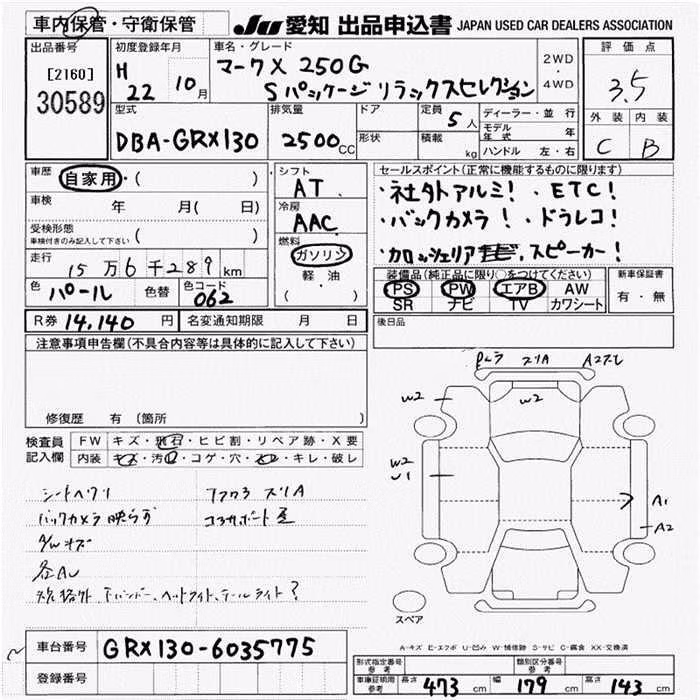 車内保管・守衛保管 JU 愛知 出品申込書 JAPAN USED CAR DEALERS ASSOCIATION
出品番号 [2160] 30589
初度登録年月 H 22 10月
車名・グレード マークX 250G
Sパッケージ リラックスセレクション
2WD
4WD
評価点 3.5
外装 内装
C B
型式 DBA-GRX130
排気量 2500cc
ドア
形状
定員 5人
積載 kg
ディーラー・並行
モデル年式 年
ハンドル 左・右
車歴 自家用・( )
車検 年 月( 日)
受検形態 車検付きのみ記入して下さい ( )
走行 15万6千289km
色 パール 色替 色コード 062
シフト AT
冷房 AAC
燃料 ガソリン
軽・油
( )
セールスポイント(正常に機能するものに限ります)
・社外アルミ! ・ETC!
・バックカメラ! ・ドラレコ!
・カロッツェリア スピーカー!
装備品(純正品に限り○をつけてください)
PS PW エアB AW
SR ナビ TV カワシート
新車保証書
有・無
R券 14,140円 名変通知期限 月 日
後日品
注意事項申告欄(不具合内容等は具体的に記入して下さい)
修復歴 有 (箇所 )
検査員記入欄
FW キズ・飛石・ヒビ割・リペア跡・X要
内装 キズ・汚れ・コゲ・穴・スレ・キレ・破レ
シートヘタリ
バックカメラ映らず
各AU
ズリA
W2
W2
W2
U1
A1
A2
スペア
A-キズ E-エクボ U-凹み W-補修跡 S-サビ C-腐食 XX-交換済
車台番号 GRX130-6035775
登録番号
形式指定番号 参考
類別区分番号 参考
車庫証明用 参考 長さ 473cm 幅 179cm 高さ 143cm